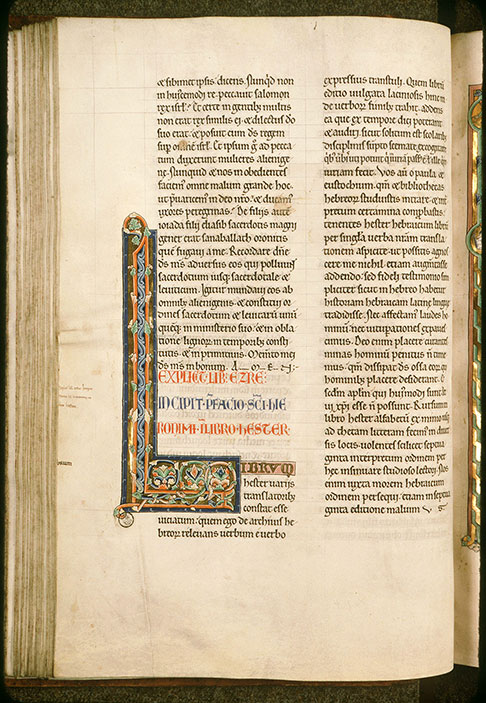 & sibimet ipsis dicens. Nunqđ non
in huꝯcemodi re peccauit salomon
rex isrł. Et certe in gentib; multis
non erat rex similis ei. & dilectus đo
suo erat. & posuit eum đs regem
sup̄ omnē isrł. Et ipsum ḡ ad pecca
tum duxerunt mulieres alienige
nę. Nunquid & nos in obedientes
faciem̄ omne malum grande hoc.
ut p̄uaricem̄ in deo nr̄o. & ducam̄
uxores peregrinas. De filijs autē
ioiada filij eliasib sacerdotis magni
gener erat sanaballath oronitis
quē fugaui a me. Recordare dn̄e
đs ms̄ aduersus eos qui polluunt
sacerdotium iusq; sacerdotale &
leuiticum. Igitur mundaui eos ab
omnib; alienigenis. & constitui or
dines sacerdotum & leuitarū unū
quēq; in ministerio suo. & in obla
tione lignorum in temporib; consti
tutis. & in primitiuis. O ento mei
đs ms̄ in bonum.
EXPLICIT LIB EZRE:
INCIPIT P̄FACIO SC̄I HIE
RONIMI IN LIBRO HESTER.
LIBRVM
hester uarijs
translatorib;
constat esse
uiciatum. quem ego de archiuis he
breoꝝ releuans uerbum e uerbo
expressius transtuli. Quem librū
editio uulgata laciniosis hinc in
de uerboꝝ
ea que ex tempore dici poterant
& audiri. sicut solitum est scolarib;
disciplinis sūpto themate excogitare
iuriam fecit. Vos aūt o paula &
eustochium. qm̄ & bibliothecas
hebreoꝝ studuistis intrare. & int̄
pretum certamina comphastis.
tenentes hester hebraicum librū
per singła uerba nr̄am transla
tionem aspicite. ut possitis agnos
cere me nichil etiam augmtasse
addendo. sed fideli testimonio sim
pliciter sicut in hebreo habetur
historiam hebraicam latinę linguę
tradidisse. Nec affectam̄ laudes ho
minū. nec uitupationes expaues
cimus. Deo enim placere curantes
minas hominū penitus n̄ time
mus. qm̄ dissipat đs ossa eoꝝ qui
hominib; placere desiderant. &
scđm apłm qui huꝯmodi sunt ser
ui xp̄i esse n̄ possunt. Rursum in
libro hester alfabetū ex minio usq;
ad thetam litteram fecim̄ in diuer
sis locis. uolentes scilicet septua
ginta interpretum ordinem per
hęc insinuare studioso lectori. Nos
enim iuxta morem hebraicum
ordinem persequi. etiam in septua
ginta editione maluim̄